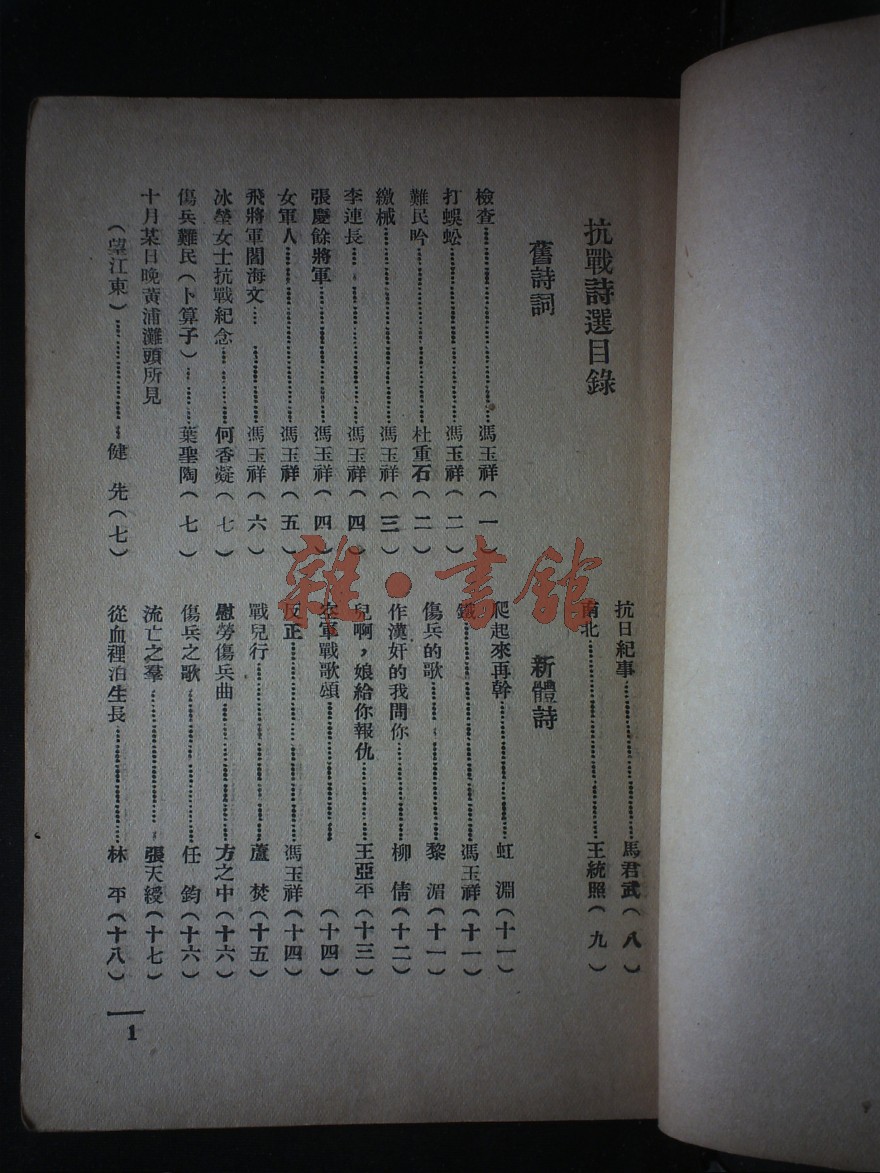 抗戰詩選目錄
舊詩詞
檢查……馮玉祥(一)
打蜈蚣……馮玉祥(二)
難民吟……杜重石(二)
繳械……馮玉祥(三)
李連長……馮玉祥(四)
張慶餘將軍……馮玉祥(四)
女軍人……馮玉祥(五)
飛將軍閻海文……馮玉祥(六)
冰瑩女士抗戰紀念……何香凝(七)
傷兵難民(卜算子)……葉聖陶(七)
十月某日晚黃浦灘頭所見
(望江東)……健先(七)
抗日紀事……馬君武(八)
南北……王統照(九)
新體詩
爬起來再幹……虹淵(十一)
鐵……馮玉祥(十一)
傷兵的歌……黎湄(十一)
作漢奸的我問你……柳倩(十二)
兒啊,娘給你報仇……王亞平(十三)
空軍戰歌頌……(十四)
反正……馮玉祥(十四)
戰兒行……蘆焚(十五)
慰勞傷兵曲……方之中(十六)
傷兵之歌……任鈞(十六)
流亡之羣……張天綬(十七)
從血裡泊生長……林平(十八)
1
雜·書館